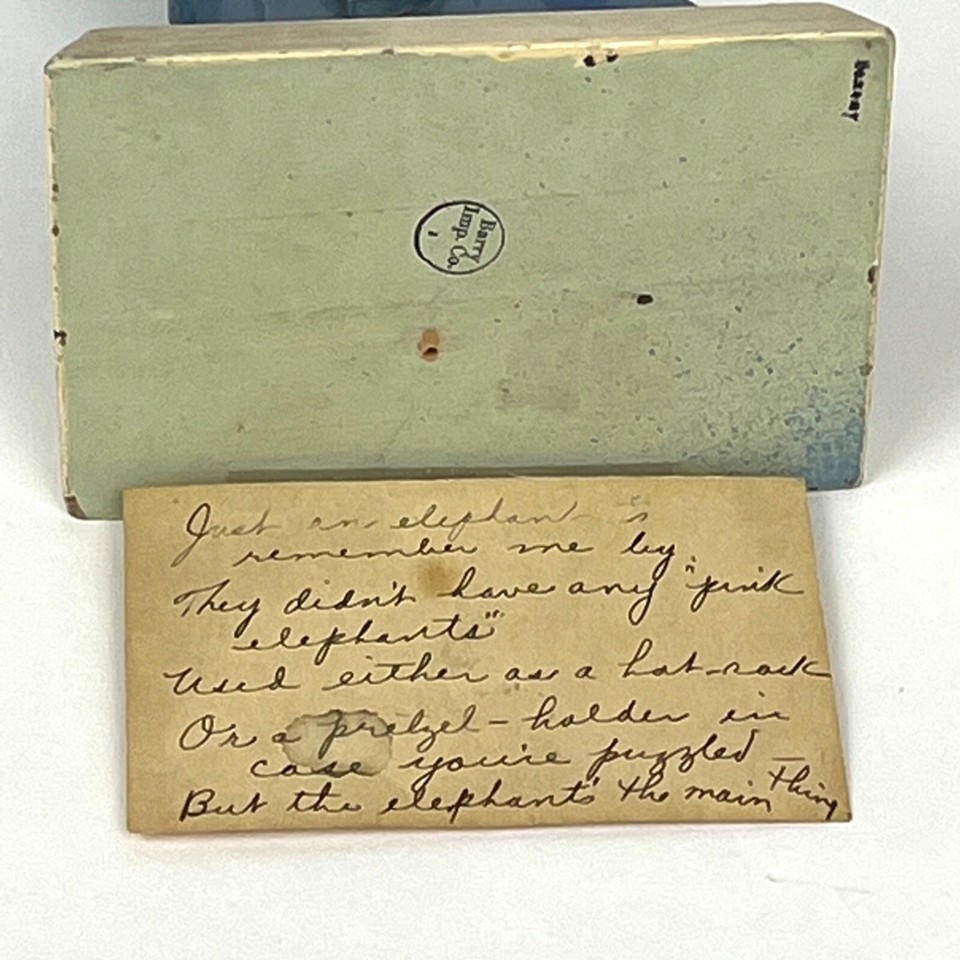 Barry
Imp. Co.
Just an elephant
remember me by.
They didn't have any "pink
elephants"
Used either as a hat-rack
Or a pretzel-holder in
case you're puzzled —
But the elephant's the main thing